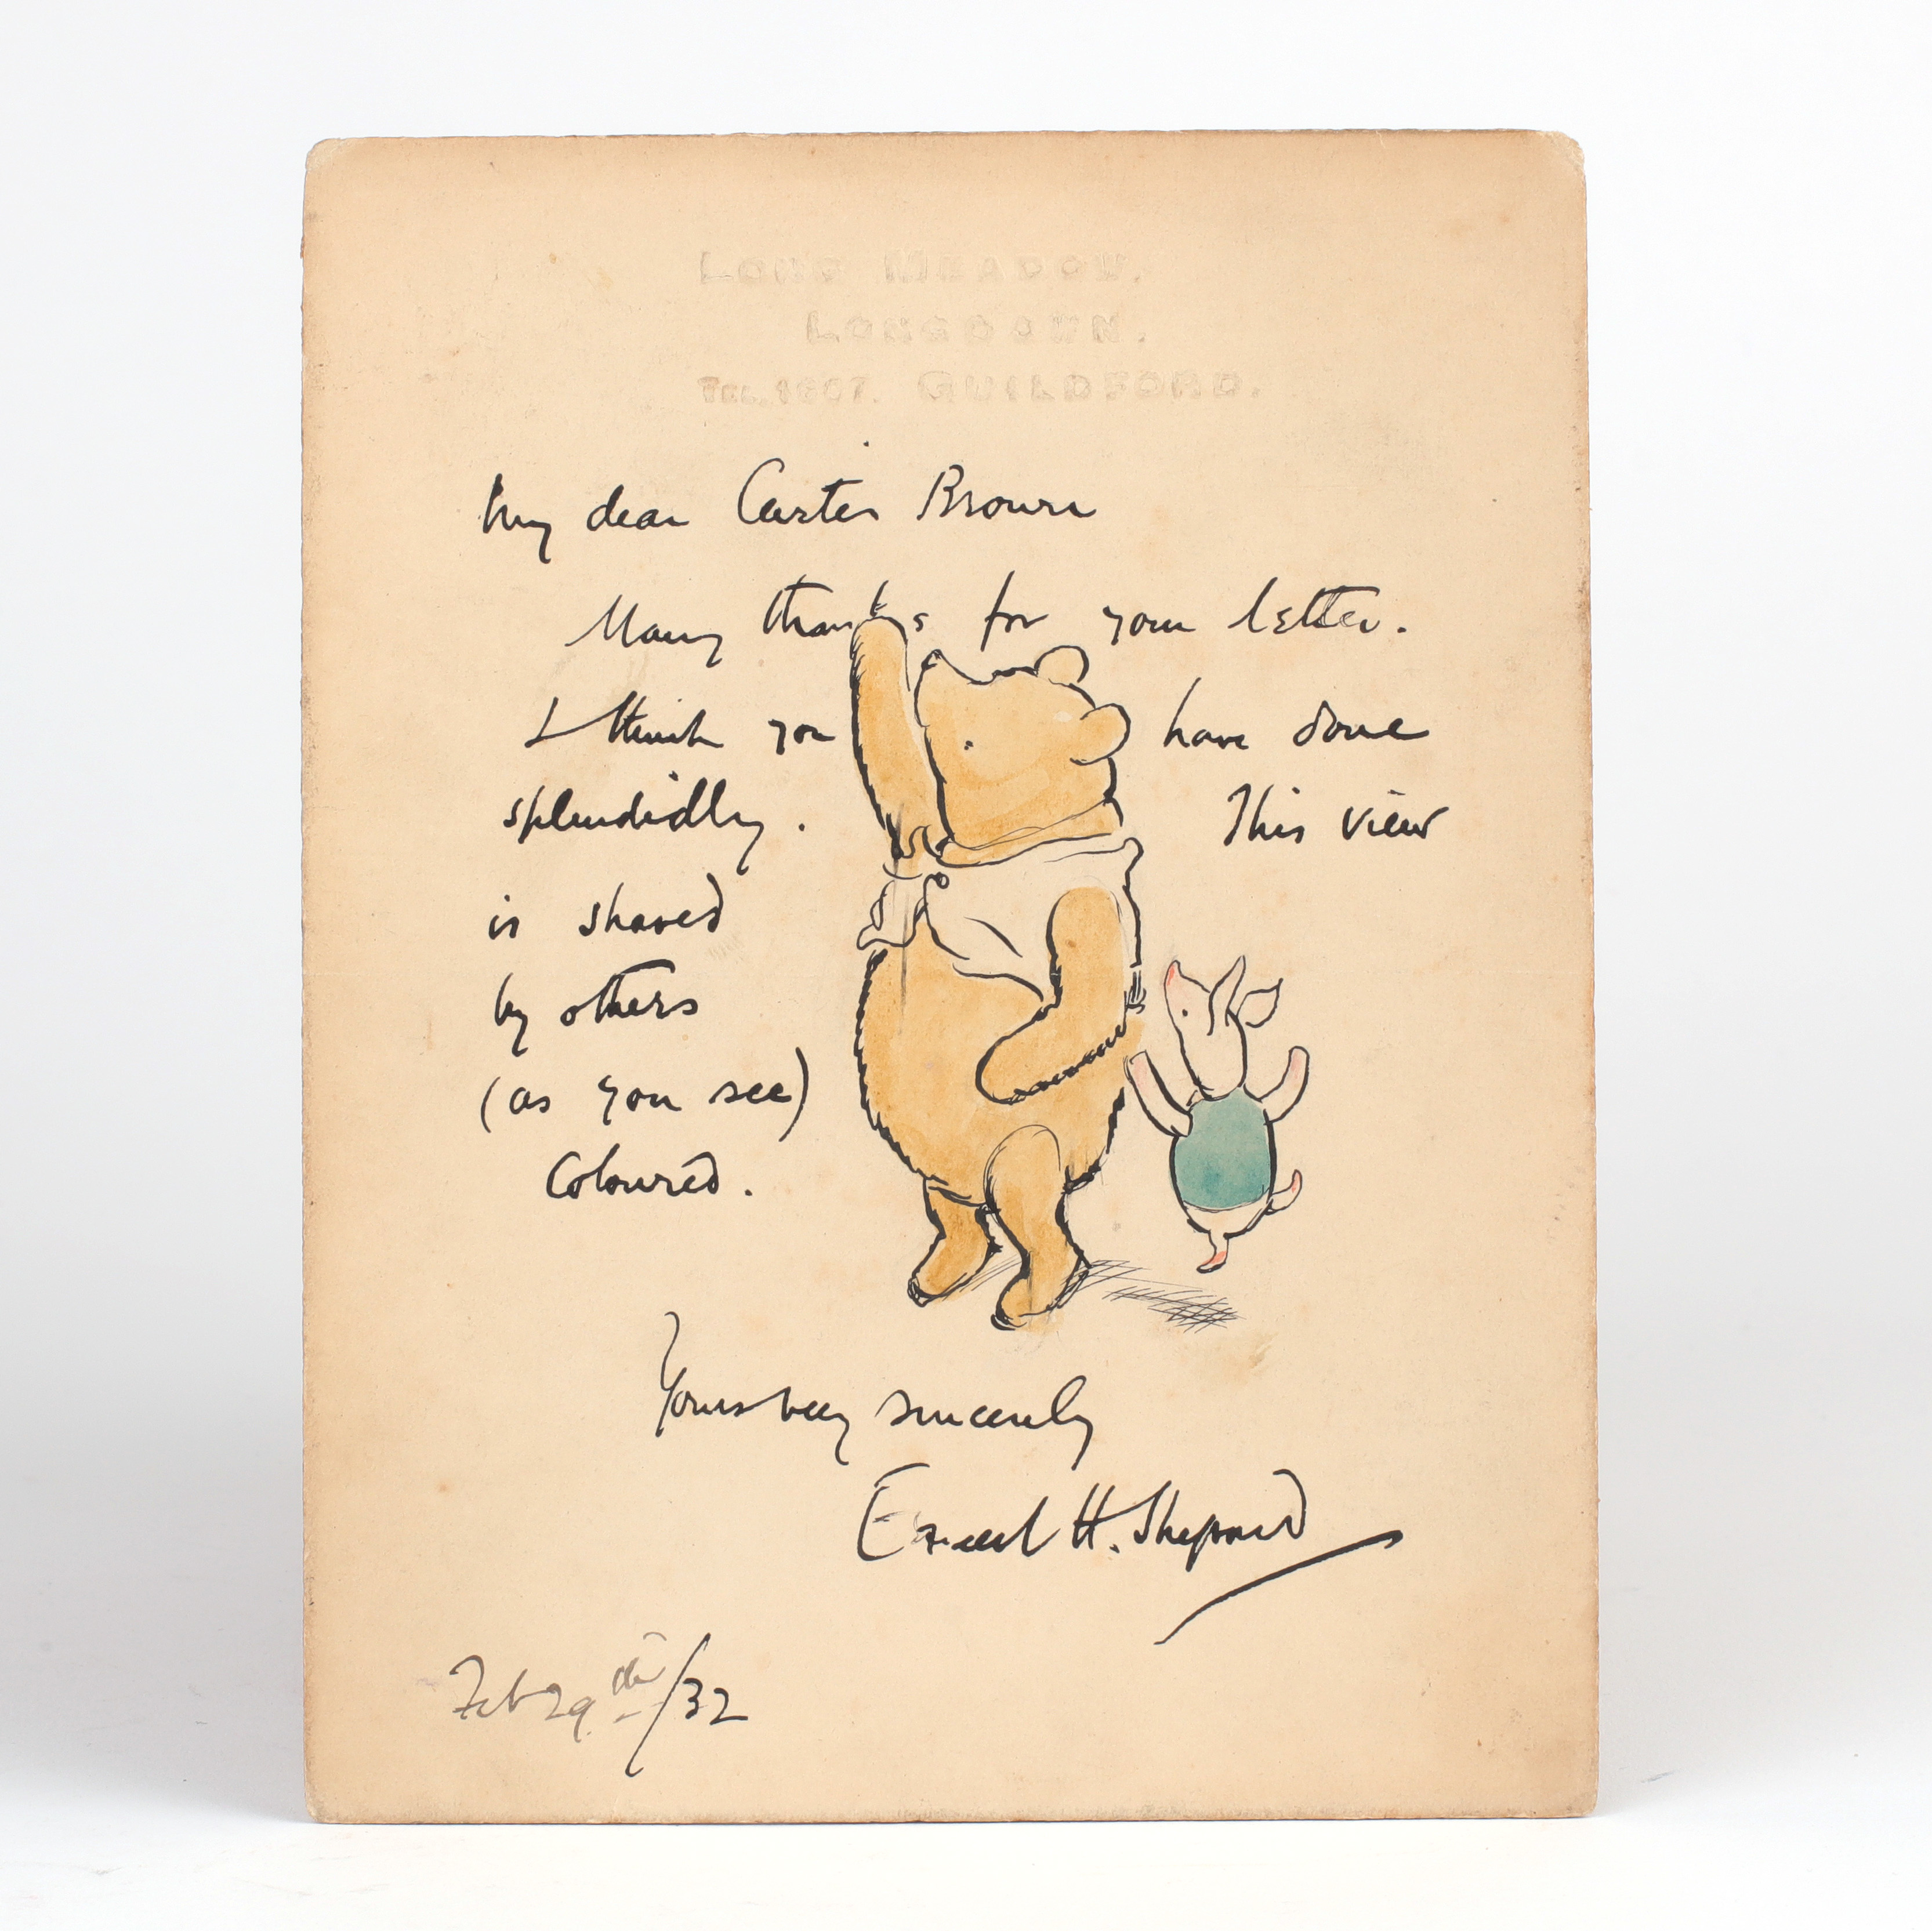 LONG MEADOW.
LONGDOWN.
TEL. 1607. GUILDFORD.
My dear Carter Brown
Many thanks for your letter.
I think you have done
splendidly. This view
is shared
by others
(as you see)
Coloured.
Yours very sincerely
Ernest H. Shepard
Feb 29th/32